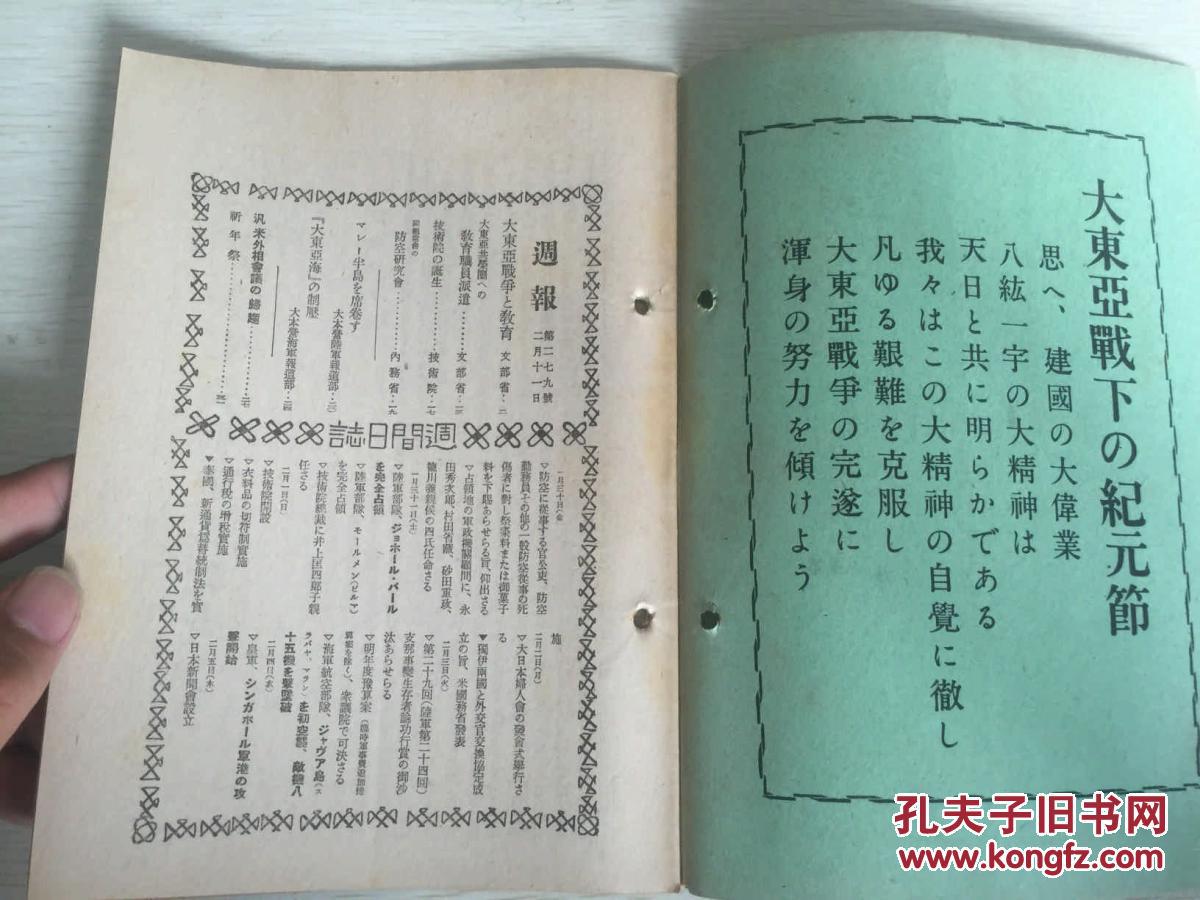 大東亞戰下の紀元節
思へ、建國の大偉業
八紘一宇の大精神は
天日と共に明らかである
我々はこの大精神の自覺に徹し
凡ゆる艱難を克服し
大東亞戰爭の完遂に
渾身の努力を傾けよう
週報
第二七九號
二月十一日
大東亞戰爭と敎育 文部省‥二
大東亞共榮圏への
敎育職員派遣………文部省‥
技術院の誕生………技術院‥一七
防空硏究會………內務省‥一九
マレー半島を席卷す
大本營陸軍報道部‥
『大東亞海』の制壓
大本營海軍報道部‥
汎米外相會議の歸趨………
祈年祭………
週間日誌
一月三十日(金)
▽防空に從事する官公吏、防空
勤務員その他の一般防空從事の死
傷者に對し祭粢料または御菓子
料を下賜あらせらる旨、仰出さる
▽占領地の軍政機關顧問に、永
田秀次郎、村田省藏、砂田重政、
德川義親侯の四氏任命さる
一月三十一日(土)
▽陸軍部隊、ジョホール・バール
を完全占領
▽陸軍部隊、モールメン(ビルマ)
を完全占領
▽技術院總裁に井上匡四郎子親
任さる
二月一日(日)
▽技術院開設
▽衣料品の切符制實施
▽通行稅の增稅實施
▼泰國、新通貨爲替統制法を實
施
二月二日(月)
▽大日本婦人會の發會式擧行さ
る
▼獨伊兩國と外交官交換協定成
立の旨、米國務省發表
二月三日(火)
▽第二十九回(陸軍第二十四回)
支那事變生存者論功行賞の御沙
汰あらせらる
▽明年度豫算案(臨時軍事費追加豫
算案を除く)、衆議院で可決さる
▽海軍航空部隊、ジャヴア島(ス
ラバヤ、マラン)を初空襲、敵機八
十五機を擊墜破
二月四日(水)
▽皇軍、シンガポール軍港の攻
擊開始
二月五日(木)
▽日本新聞會設立
孔夫子旧书网
www.kongfz.com